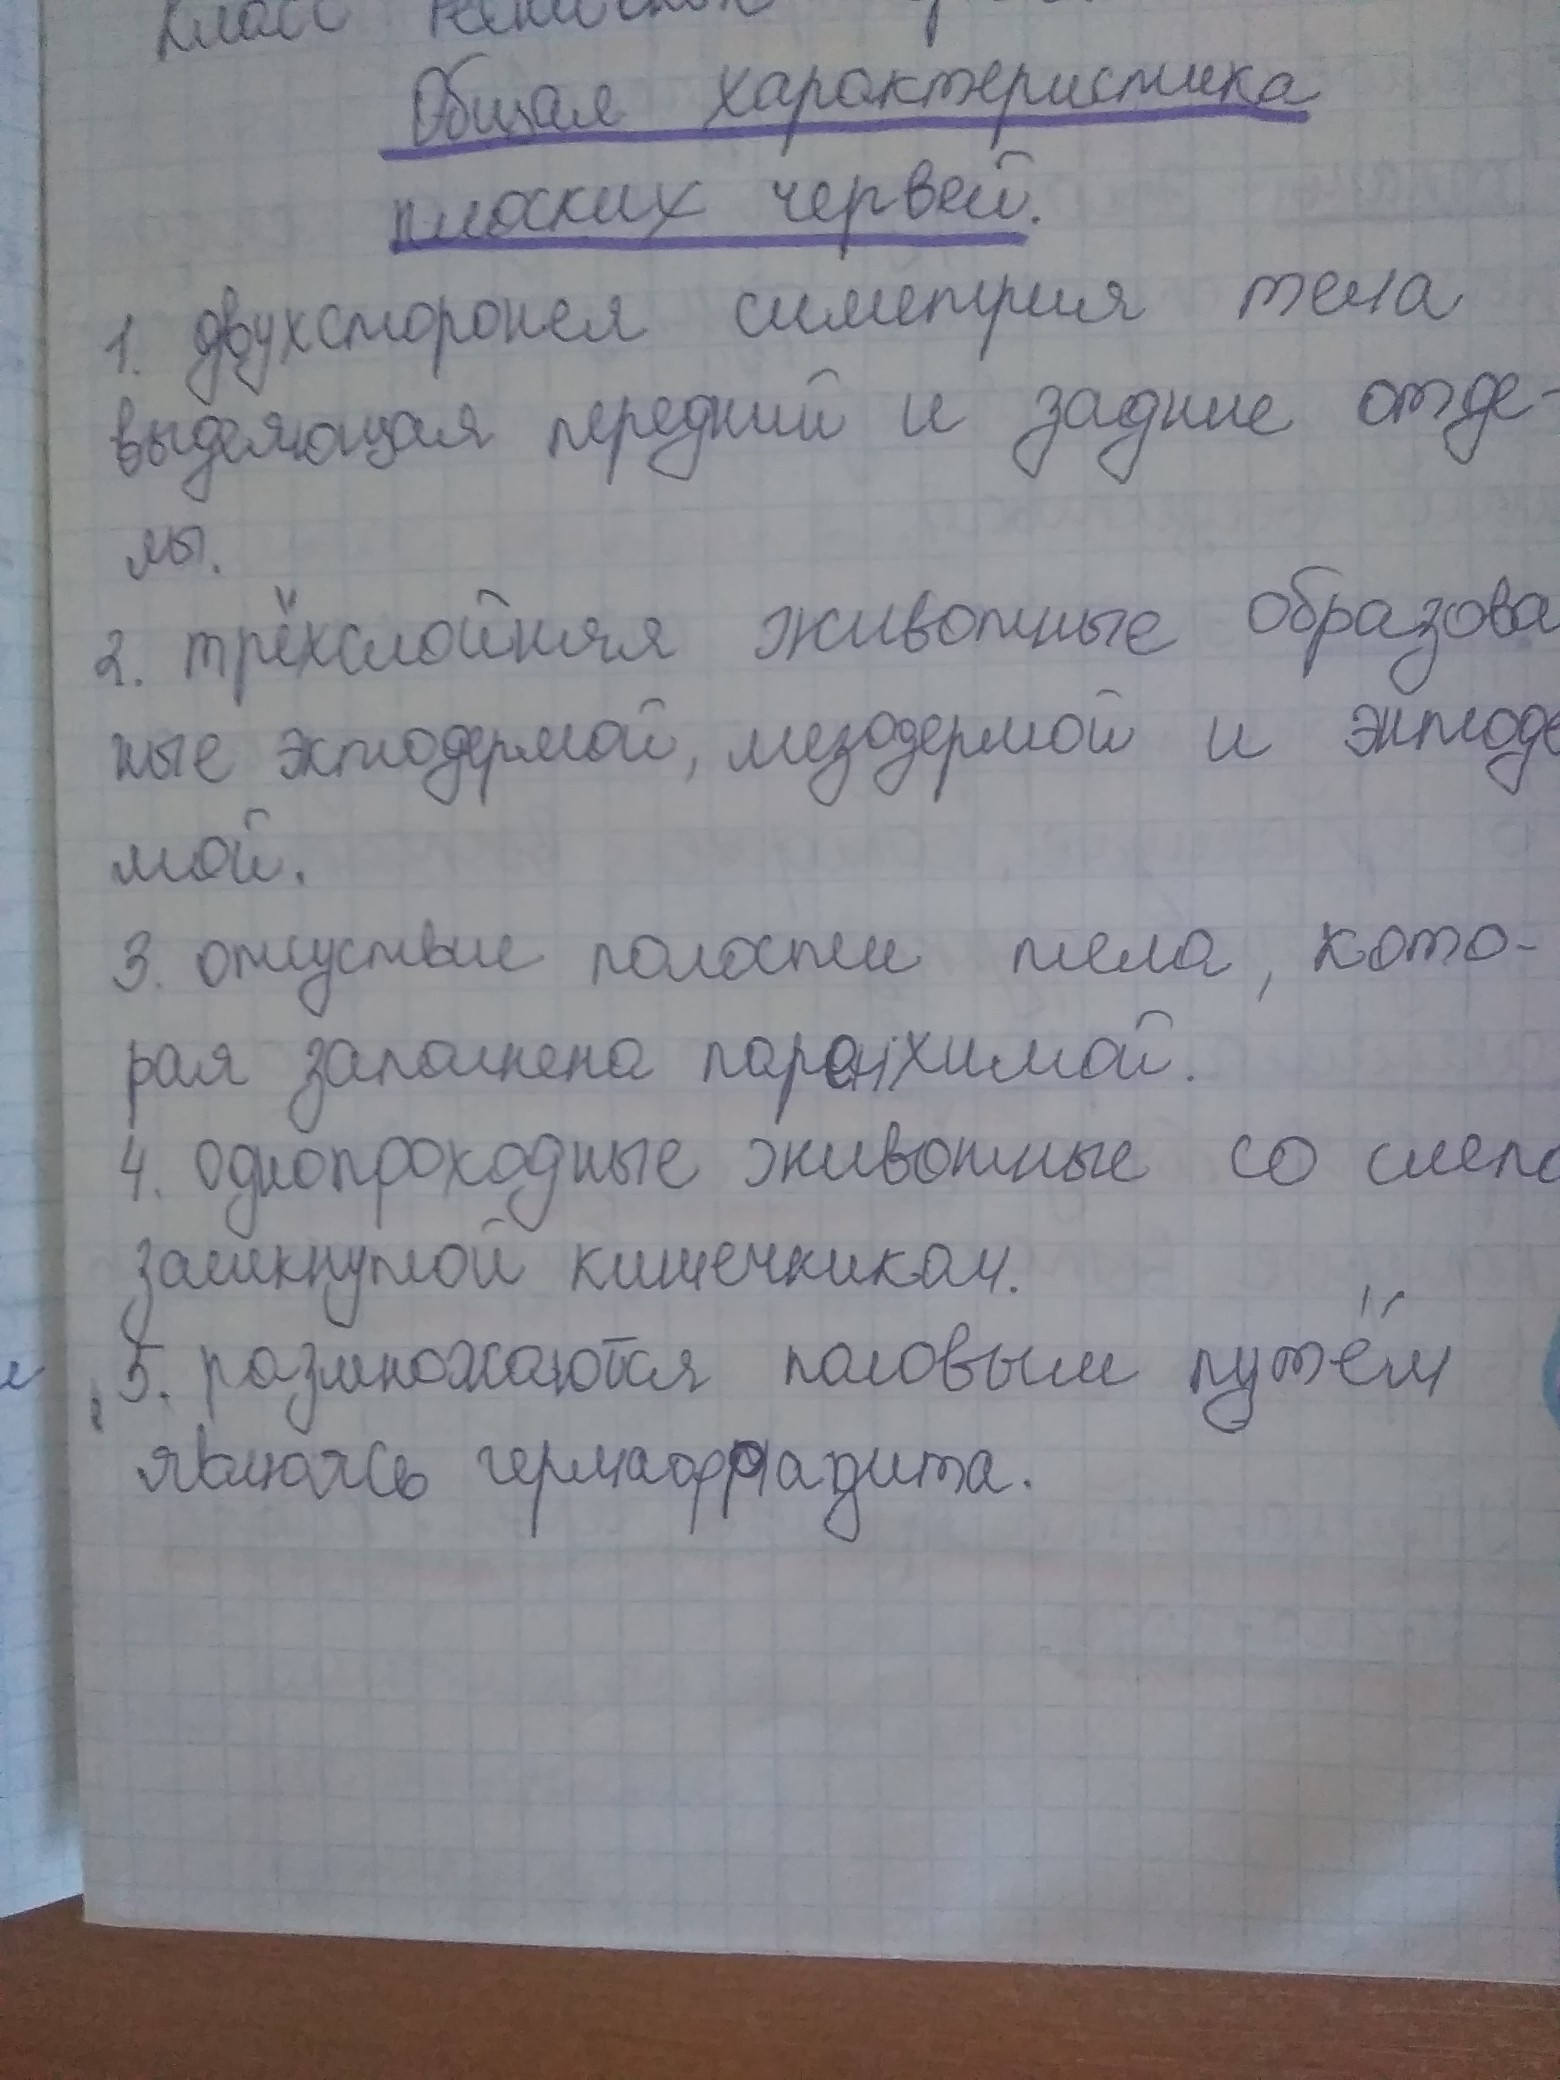 Класс
Общая характеристика
плоских червей.
1. двухстороняя симетрия тела
выделяющая передний и задние отде-
лы.
2. трёхслойняя животные образова
ные эктодермой, мезодермой и энтоде
мой.
3. отсуствие полости тела, кото-
рая заполнена паренхимой.
4. однопроходные животные со слепо
замкнутой кишечником.
5. размножаются половым путём
являясь гермафрадита.